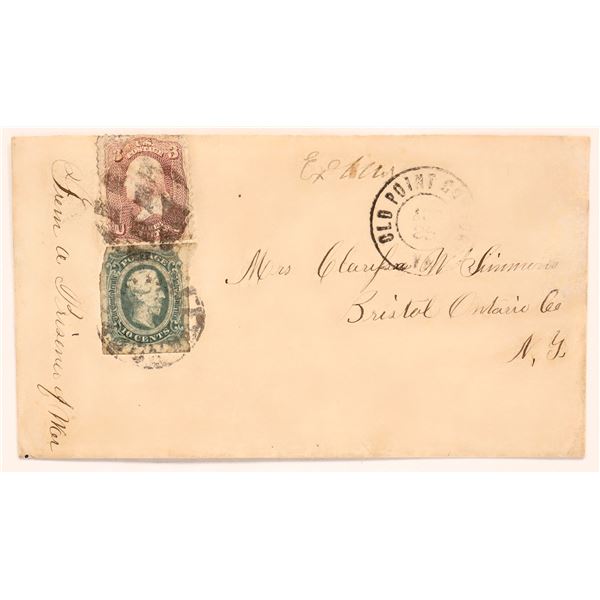 From a Prisoner of War
U.S.
3 3
POSTAGE
10 CENTS
Ex
OLD POINT CO
VA
Mrs Clarissa Mc Simmons
Bristol Ontario Co
N. Y.